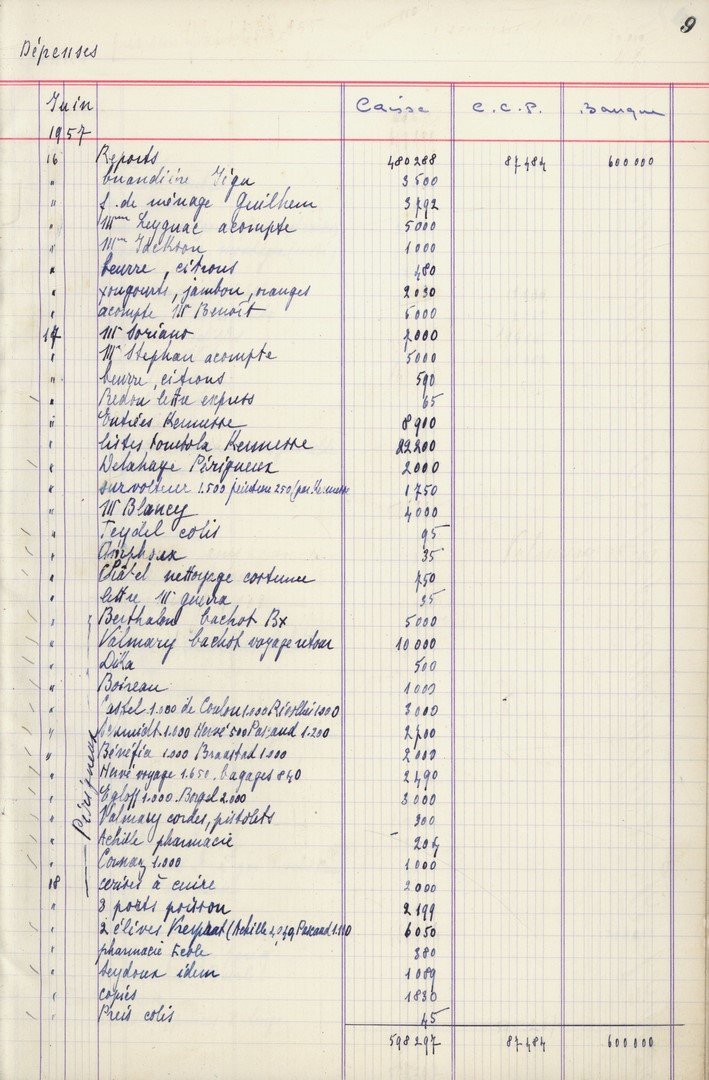 9
Dépenses
Juin Caisse C.C.P. Banque
1957
16 Reports 480288 87484 600000
" buandière 3500
" f. de ménage Guilhem 3792
" Mme Leygnac acompte 5000
" Mme Jackson 1000
" beurre, citrons 480
" yougourts, jambon, oranges 2030
" acompte Mr Benoît 5000
17 Mr Soriano 2000
" Mr Stephan acompte 5000
" beurre, citrons 590
" Redon lettre express 65
" Entrées Kermesse 8900
" listes tombola Kermesse 22200
" Delahaye Périgueux 2000
" survolteur 1.500 peinture 250 (par Kermesse 1750
" Mr Blancy 4000
" Teydel colis 95
" Amphoux 35
" Châtel nettoyage costume 750
" lettre Mr guerra 35
" Berthalon bachot Bx 5000
" Valmary bachot voyage retour 10000
" Dika 500
" Boireau 1000
" Castel 1.000 de Coulon 1.000 1000 3000
" Schmidt 1.000 Hervé 500 Pascaud 1.200 2700
" Bénéfix 1.000 Braastad 1.000 2000
" Hervé voyage 1.650. bagages 840 2490
" Egloff 1.000. Borgel 2.000 3000
" Valmary cordes, pistolets 300
" Achille pharmacie 204
" 1.000 1000
Périgueux
18 cerises à cuire 2000
" 3 ports poisson 2199
" 2 élèves (Achille Pascaud 6050
" pharmacie Ecole 380
" Seydoux idem 1089
" copies 1830
" Preis colis 45
598297 87484 600000